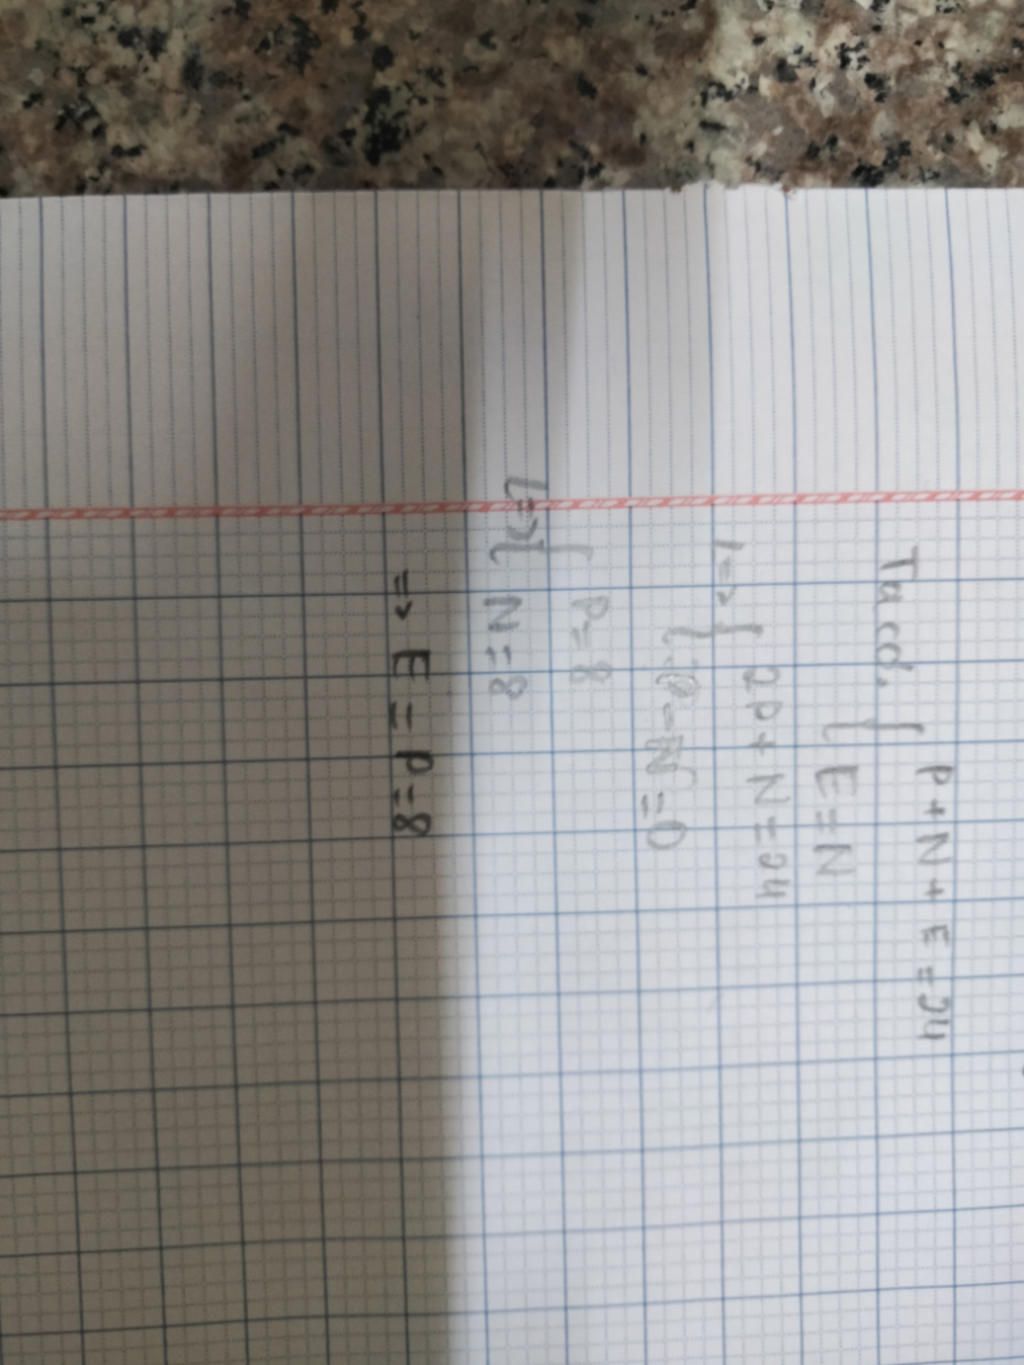 Ta có:
{ P + N + E = 24
N = E
<=> { 2P + N = 24
P - N = 0
<=> { P = 8
N = 8
=> E = P = 8